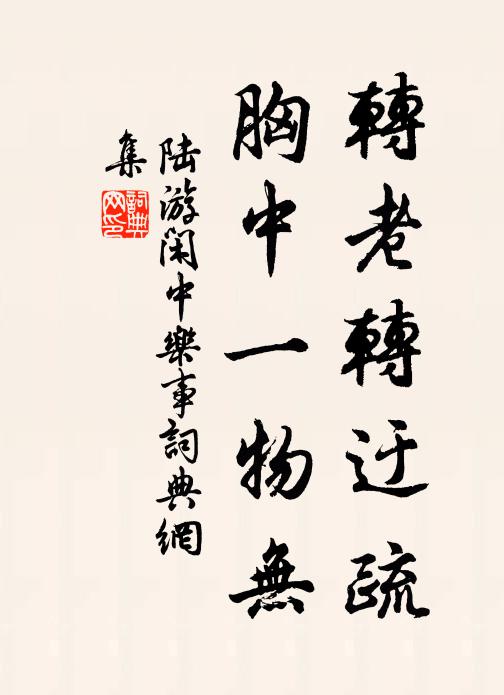 轉老轉迂疏
胸中一物無
陸游閑中樂事詞典網
集
詞典
网印